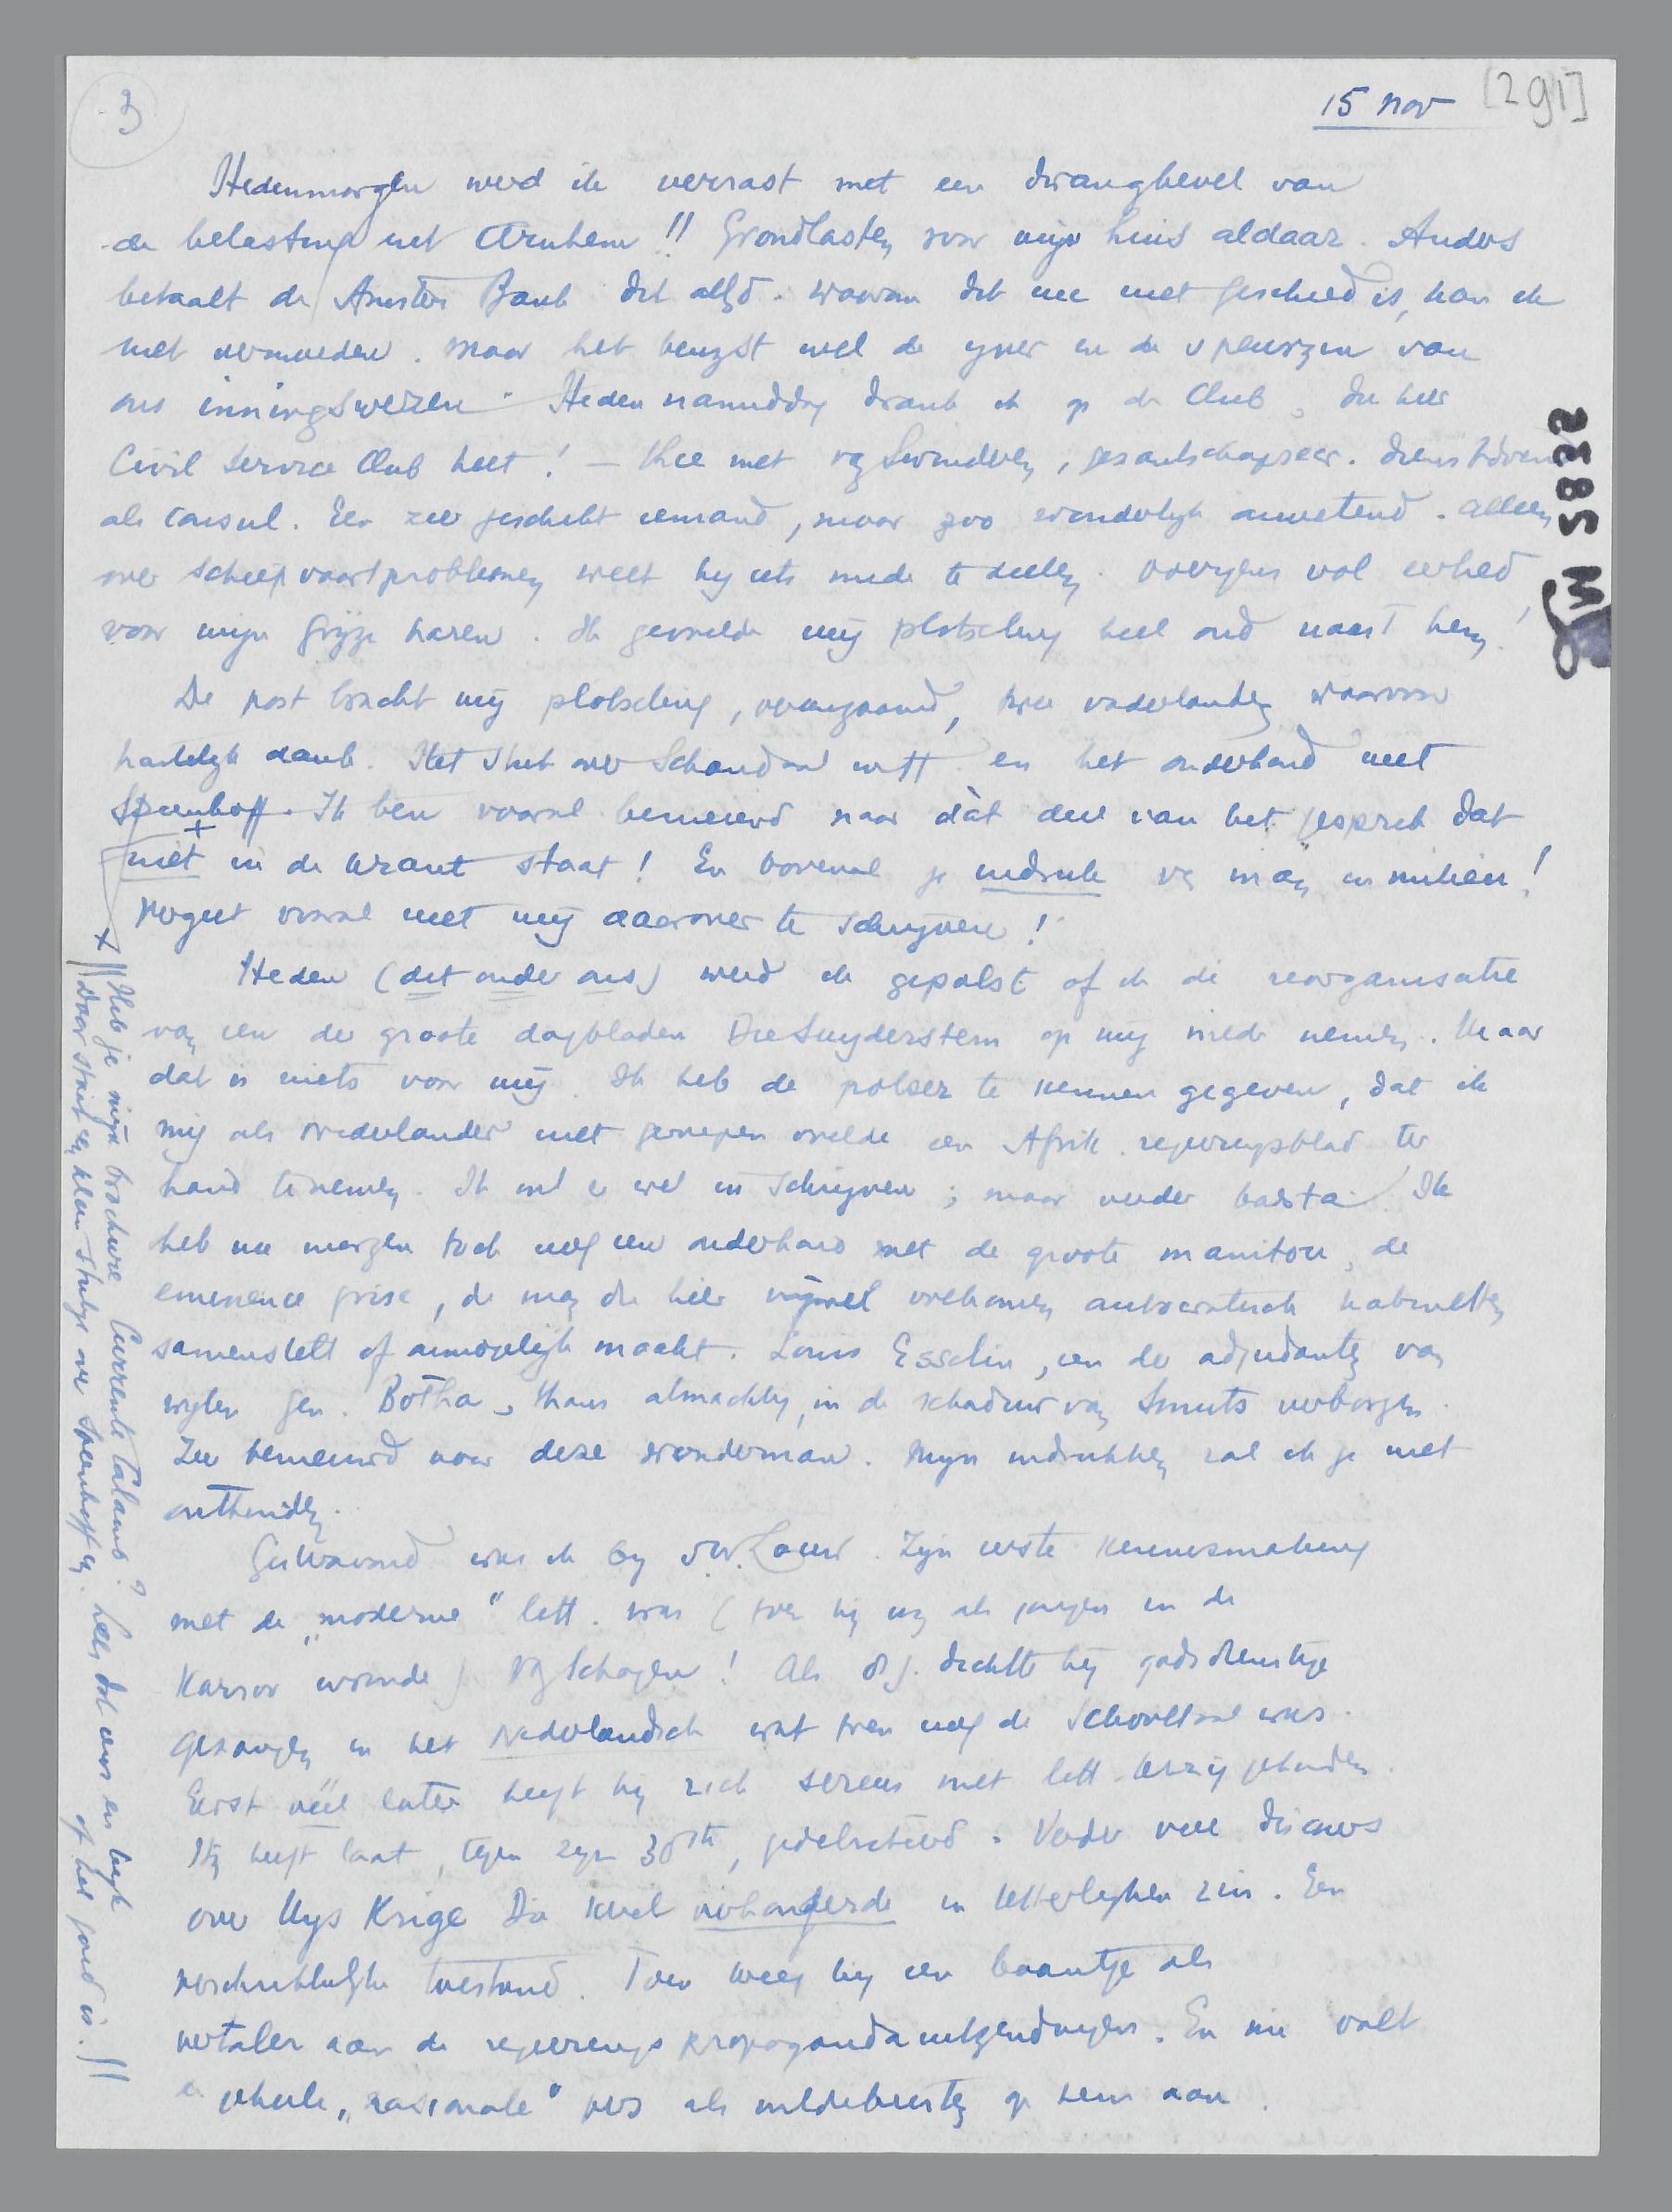 3
15 nov [291]
Hedenmorgen werd ik verrast met een dwangbevel van
de belasting uit Arnhem!! Grondlasten voor mijn huis aldaar. Anders
betaalt de Amster Bank dit altijd. waarom dit nu niet geschied is, kan ik
niet vermoeden. Maar het bewijst wel de ijver en de speurzin van
ons inningswezen. Heden namiddag drank ik op de Club, die hier
Civil Service Club heet! – thee met v Swinderen, gezantschapssecr. dienstdoend
als consul. Een zeer geschikt iemand, maar zoo wonderlijk onwetend. Alleen
over scheepvaartproblemen weet hij iets mede te deelen. Overigens vol eerbied
voor mijn grijze haren. Ik gevoelde mij plotseling heel oud naast hem!
De post bracht mij plotseling, , twee vaderlanden waarvoor
hartelijk dank. Het stuk over Schandaal en het onderhoud met
Speenhoff. Ik ben vooral benieuwd naar dàt deel van het gesprek dat
niet in de krant staat! En bovenal je indruk v man en milieu!
Vergeet vooral niet mij daarover te schrijven!
Heden (dit onder ons) werd ik gepolst of ik de reorganisatie
van een der groote dagbladen Die Suyderstem op mij wilde nemen. Maar
dat is niets voor mij. Ik heb de polser te kennen gegeven, dat ik
mij als Nederlander niet geroepen voelde een Afrik. regeeringsblad ter
hand te nemen. Ik wil er wel in schrijven; maar verder basta. Ik
heb nu morgen toch nog een onderhoud met de groote manitou, de
eminence grise, de man die hier vrijwel volkomen autocratisch kabinetten
samenstelt of onmogelijk maakt. Louis Esselen, een der adjudanten van
wijlen gen. Botha, thans almachtig, in de schaduw van Smuts verborgen.
Zeer benieuwd naar deze wonderman. Mijn indrukken zal ik je niet
onthouden.
Gisteravond was ik bij v.W. Louw. Zijn eerste kennismaking
met de „moderne" lett. was (toen hij nog als jongen in de
Karroo woonde) v Schagen! Als dichtte hij godsdienstige
gezangen in het Nederlandsch wat toen nog de schooltaal was.
Eerst véél later heeft hij zich serieus met lett. bezig gehouden.
Hij heeft laat, tegen zijn 30ste, gedebuteerd. Verder veel nieuws
over Uys Krige Die knul verhongerde in letterlijken zin. Een
verschrikkelijke toestand. Toen kreeg hij een baantje als
vertaler aan de regeerings propaganda uitzendingen. En nu valt
de geheele „nasionale" pers als wildebeesten op hem aan.
+ || Heb je mijn brochure Currente Calamo? Lees dat eens en kijk
|| Daar staat een klein stukje over Speenhoff in. of het goed is. ||
LM 5832